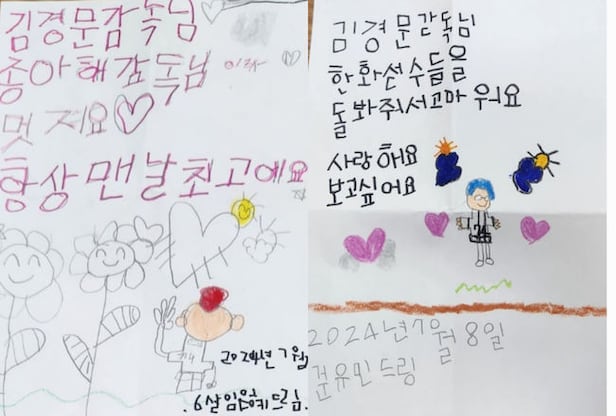 김경문감독님
종아해감독님
멋지요
항상맨날최고예요
2024년7월
.6살 드림.
김경문감독님
한화선수들을
돌봐줘서고마워요
사랑해요
보고싶어요
74
2024년7월8일
드림